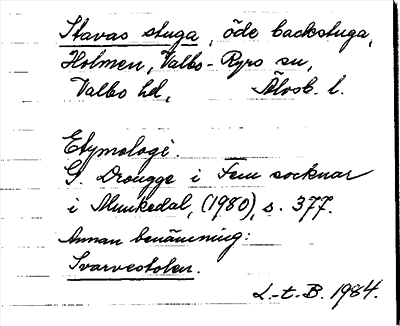 Stavas stuga, öde backstuga,
Holmen, Valbo-Ryrs sn,
Valbo hd, Älvsb. l.
Etymologi.
G. Drougge i Fem socknar
i Munkedal, (1980), s. 377.
Annan benämning:
Svarvestolen.
L-t-B. 1984.